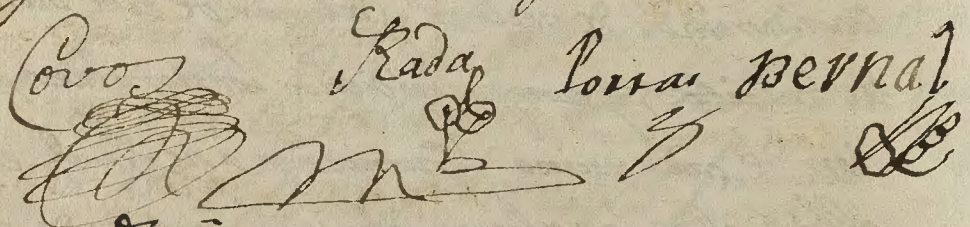 Covos Rada Porras Bernal